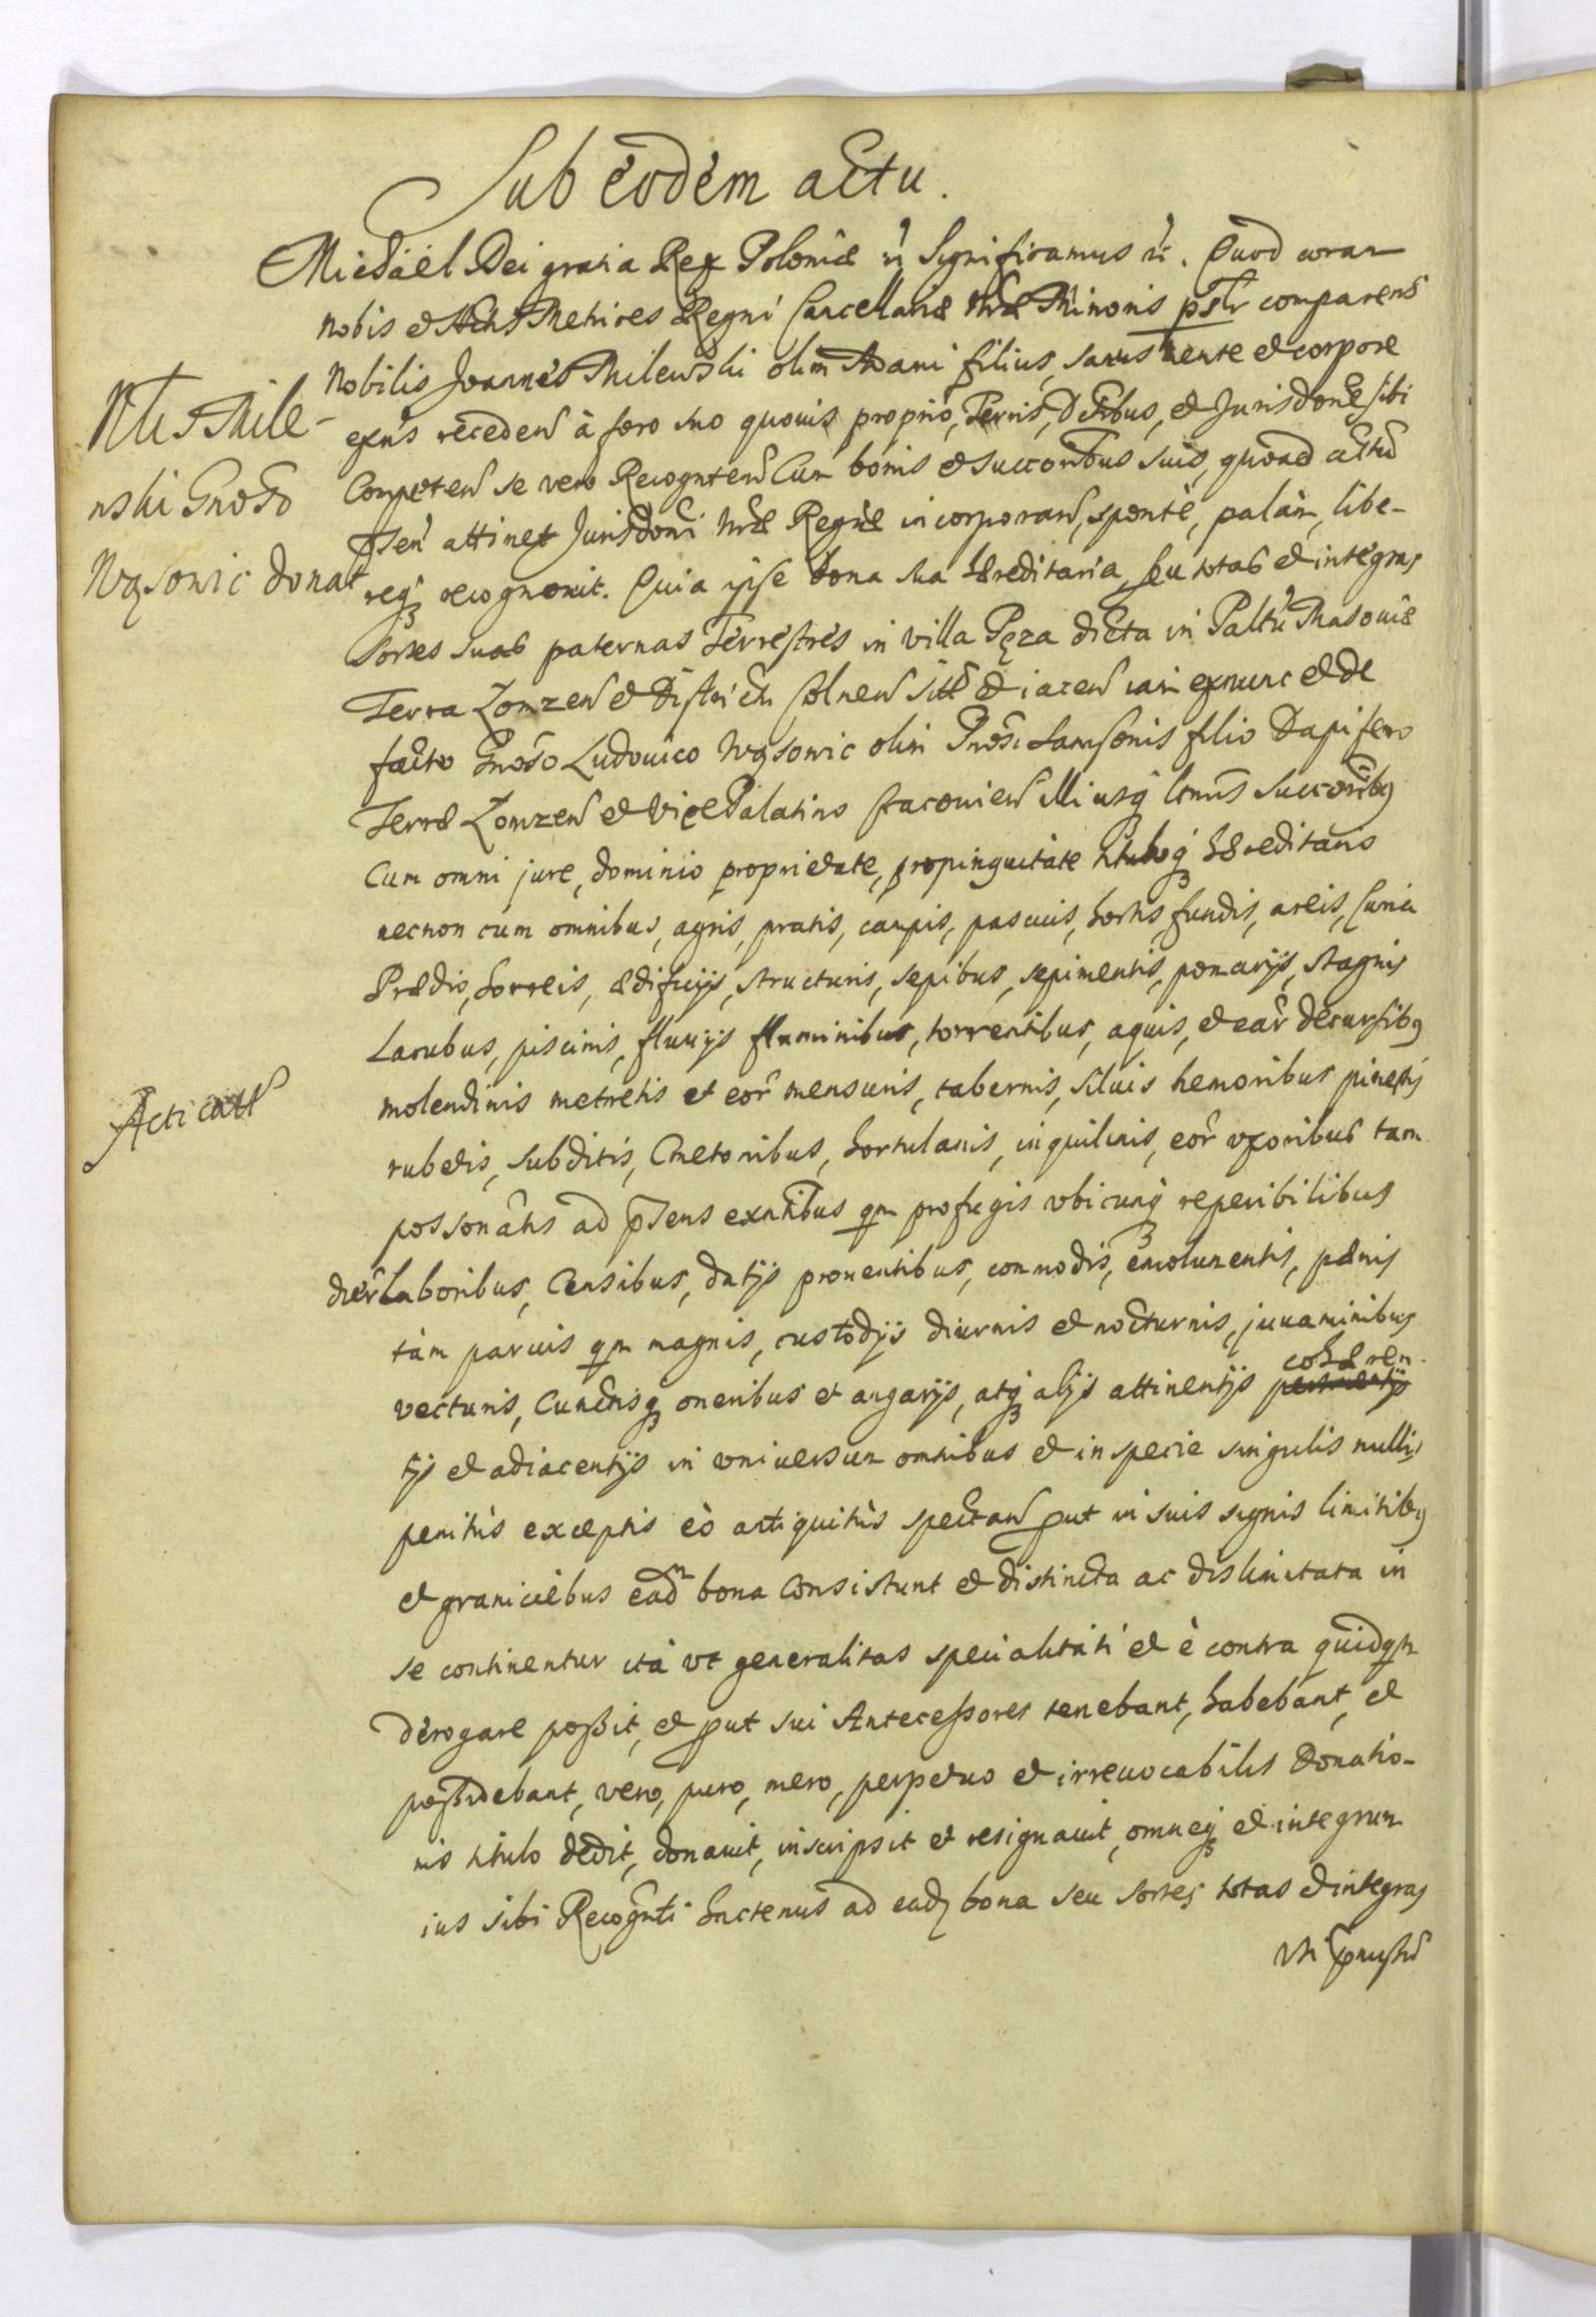 Sub eodem actu.
Michael Dei gratia Rex Poloniæ &c Significamus &c. Quod coram
nobis et Actis Metrices Regni Cancellariæ nræ Minoris psltr comparens
Nobilis Joannes Milewski olim Adami filius, sanus mente et corpore
exñs receden à foro suo quouis proprio, Terris, Dtibus, et Jurisdone sibi
Competen se vero Recognten Cum bonis et succoribus suis, quoad actũ
Psen attinet Jurisdoni nræ Regiæ incorporan, sponte, palàm, libe-
reqꝫ recognouit. Quia ipse bona sua hæreditaria, seu totas et integras
Sortes suas paternas Terrestres in villa Pęza dicta in Paltu Masouiæ
Terra Łomzen et Districtu Colnen sitæ et iacen iam exnunc et de
facto Gnoso Ludouico Wąsowic olim Gnosi Samsonis filio Dapifero
Terræ Łomzen et Vice Palatino Cracouien illiusqꝫ ltimis Succoribꝰ
Cum omni jure, dominio proprietate, propinquitate tituloqꝫ hæreditario
necnon cum omnibus, agris, pratis, campis, pascuis, hortis, fundis, areis, Curia
Prædio, horreis, ædificijs, structuris, sepibus, sepimentis, pomarijs, stagnis
Lacubus, piscinis, fluuijs fluminibus, torrentibus, aquis, et ear̃ decursibꝰ
molendinis metretis et eor̃ mensuris, tabernis, siluis nemoribus pinetis
rubetis, subditis, Cmetonibus, hortulanis, inquilinis, eor̃ vxoribus tam
possonatis ad psens exntibus qm profugis vbicunqꝫ reperibilibus
dier̃ Laboribus, Censibus, datijs prouentibus, commodis, emolumentis, pænis
tàm paruis qm magnis, custodijs diurnis et nocturnis, juuaminibus
vecturis, Cunctisqꝫ oneribus et angarijs, atqꝫ alijs attinentijs pertinentijs cohæren-
tijs et adiacentijs in vniuersum omnibus et in specie singulis nullis
penitùs exceptis eò antiquitùs spectan put in suis signis limitibꝰ
et graniciebus eadm bona Consistunt et distincta ac dislimitata in
se continentur ità vt generalitas specialitati et è contra quidqm
derogare possit, et put sui Antecessores tenebant, habebant, et
possidebant, vero, puro, mero, perpetuo et irreuocabilis Donatio-
nis titulo dedit, donauit, inscripsit et resignauit, omneqꝫ et integrum
ius sibi Recognti hactenus ad eadꝫ bona seu sortes totas et integras
vti
Nlis Mile-
wski Gnoso
Wąsowic donat
Acticatt